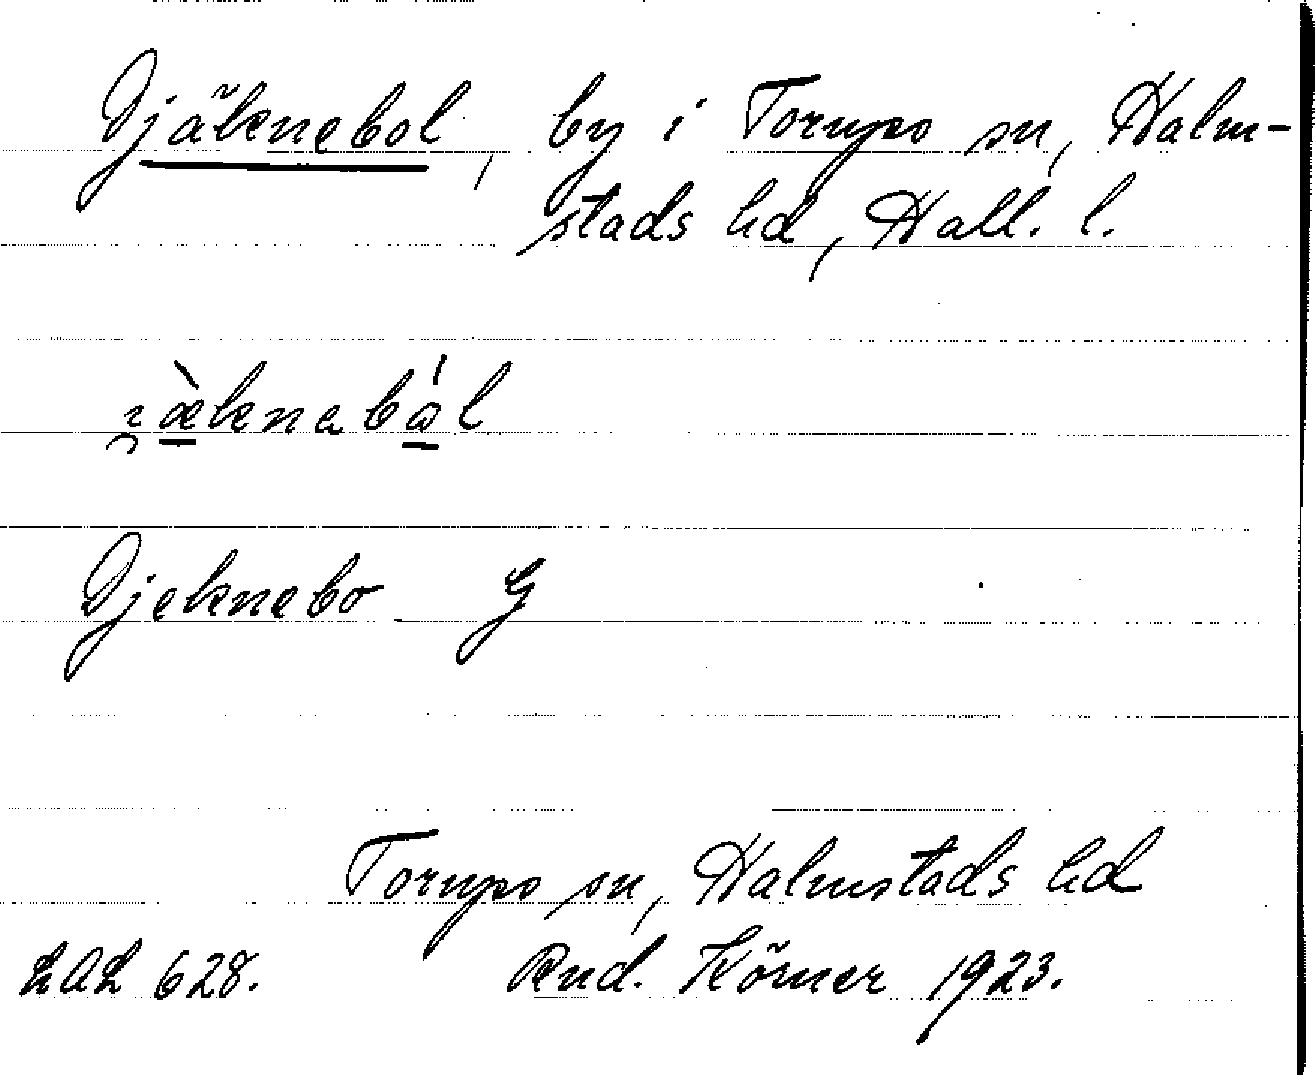 Gjäknebol, by i Torups sn, Halm-
stads hd, Hall. l.
Gjeknebo G
Torups sn, Halmstads hd
LAL 628. Rud. Körner 1923.